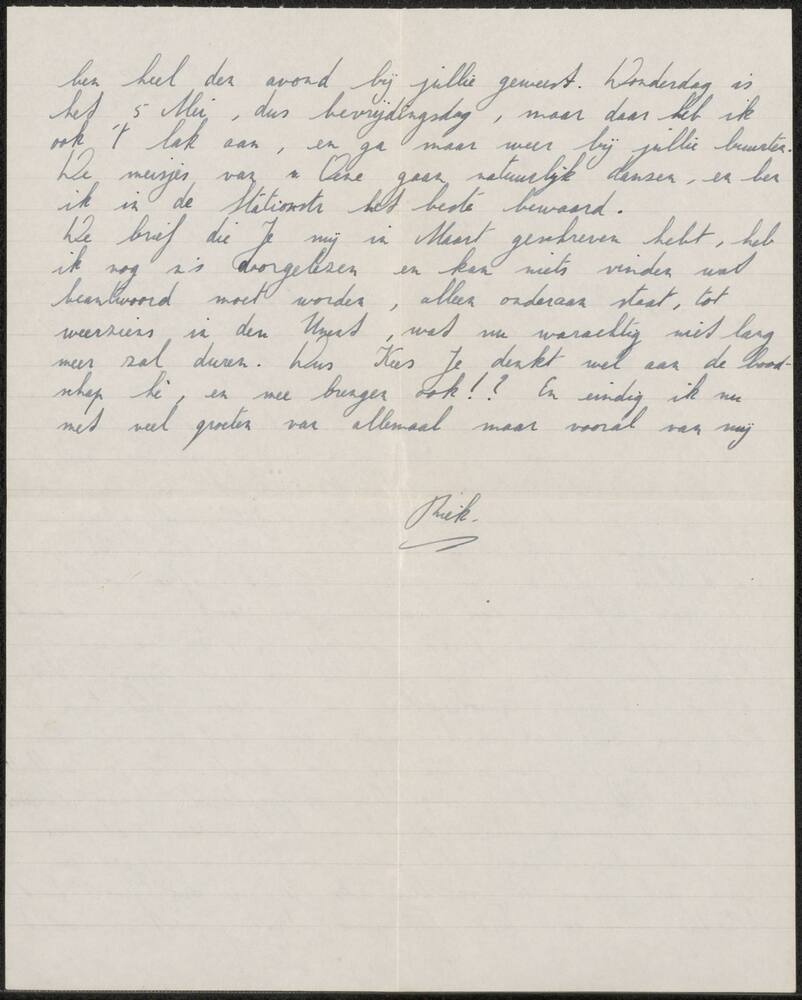 ben heel den avond bij jullie geweest. Donderdag is
het 5 Mei, dus bevrijdingsdag, maar daar heb ik
ook 't lak aan, en ga maar weer bij jullie buurten.
De meisjes van n Oave gaan natuurlijk dansen, en ben
ik in de Stationstr het beste bewaard.
De brief die Je mij in Maart geschreven hebt, heb
ik nog n's doorgelezen en kan niets vinden wat
beantwoord moet worden, alleen onderaan staat, tot
weerziens in den Umest, wat nu warachtig niet lang
meer zal duren. Dus Kees Je denkt wel aan de bood-
schap hé, en mee brengen ook!? En eindig ik nu
met veel groeten van allemaal maar vooral van mij
Riek.